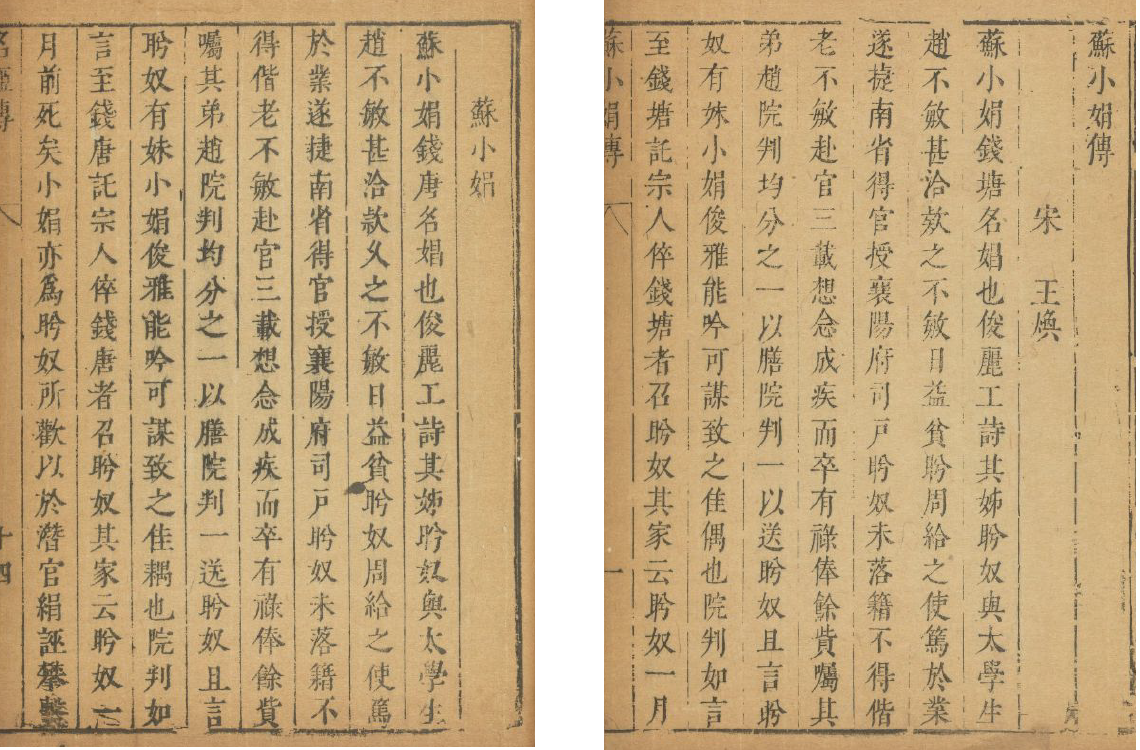 蘇小娟
蘇小娟錢唐名娼也俊麗工詩其姊盼奴與太學生
趙不敏甚洽款久之不敏日益貧盼奴周給之使篤
於業遂捷南省得官授襄陽府司戶盼奴未落籍不
得偕老不敏赴官三載想念成疾而卒有祿俸餘貲
囑其弟趙院判均分之一以膳院判一送盼奴且言
盼奴有妹小娟俊雅能吟可謀致之佳耦也院判如
言至錢唐託宗人倅錢唐者召盼奴其家云盼奴一
月前死矣小娟亦為盼奴所歡以於潛官絹誣攀繫
名姬傳
十四
蘇小娟傳
宋 王煥
蘇小娟錢塘名娼也俊麗工詩其姊盼奴與太學生
趙不敏甚洽款之不敏日益貧盼周給之使篤於業
遂捷南省得官授襄陽府司戶盼奴未落籍不得偕
老不敏赴官三載想念成疾而卒有祿俸餘貲囑其
弟趙院判均分之一以膳院判一以送盼奴且言盼
奴有妹小娟俊雅能吟可謀致之佳偶也院判如言
至錢塘託宗人倅錢塘者召盼奴其家云盼奴一月
蘇小娟傳
一